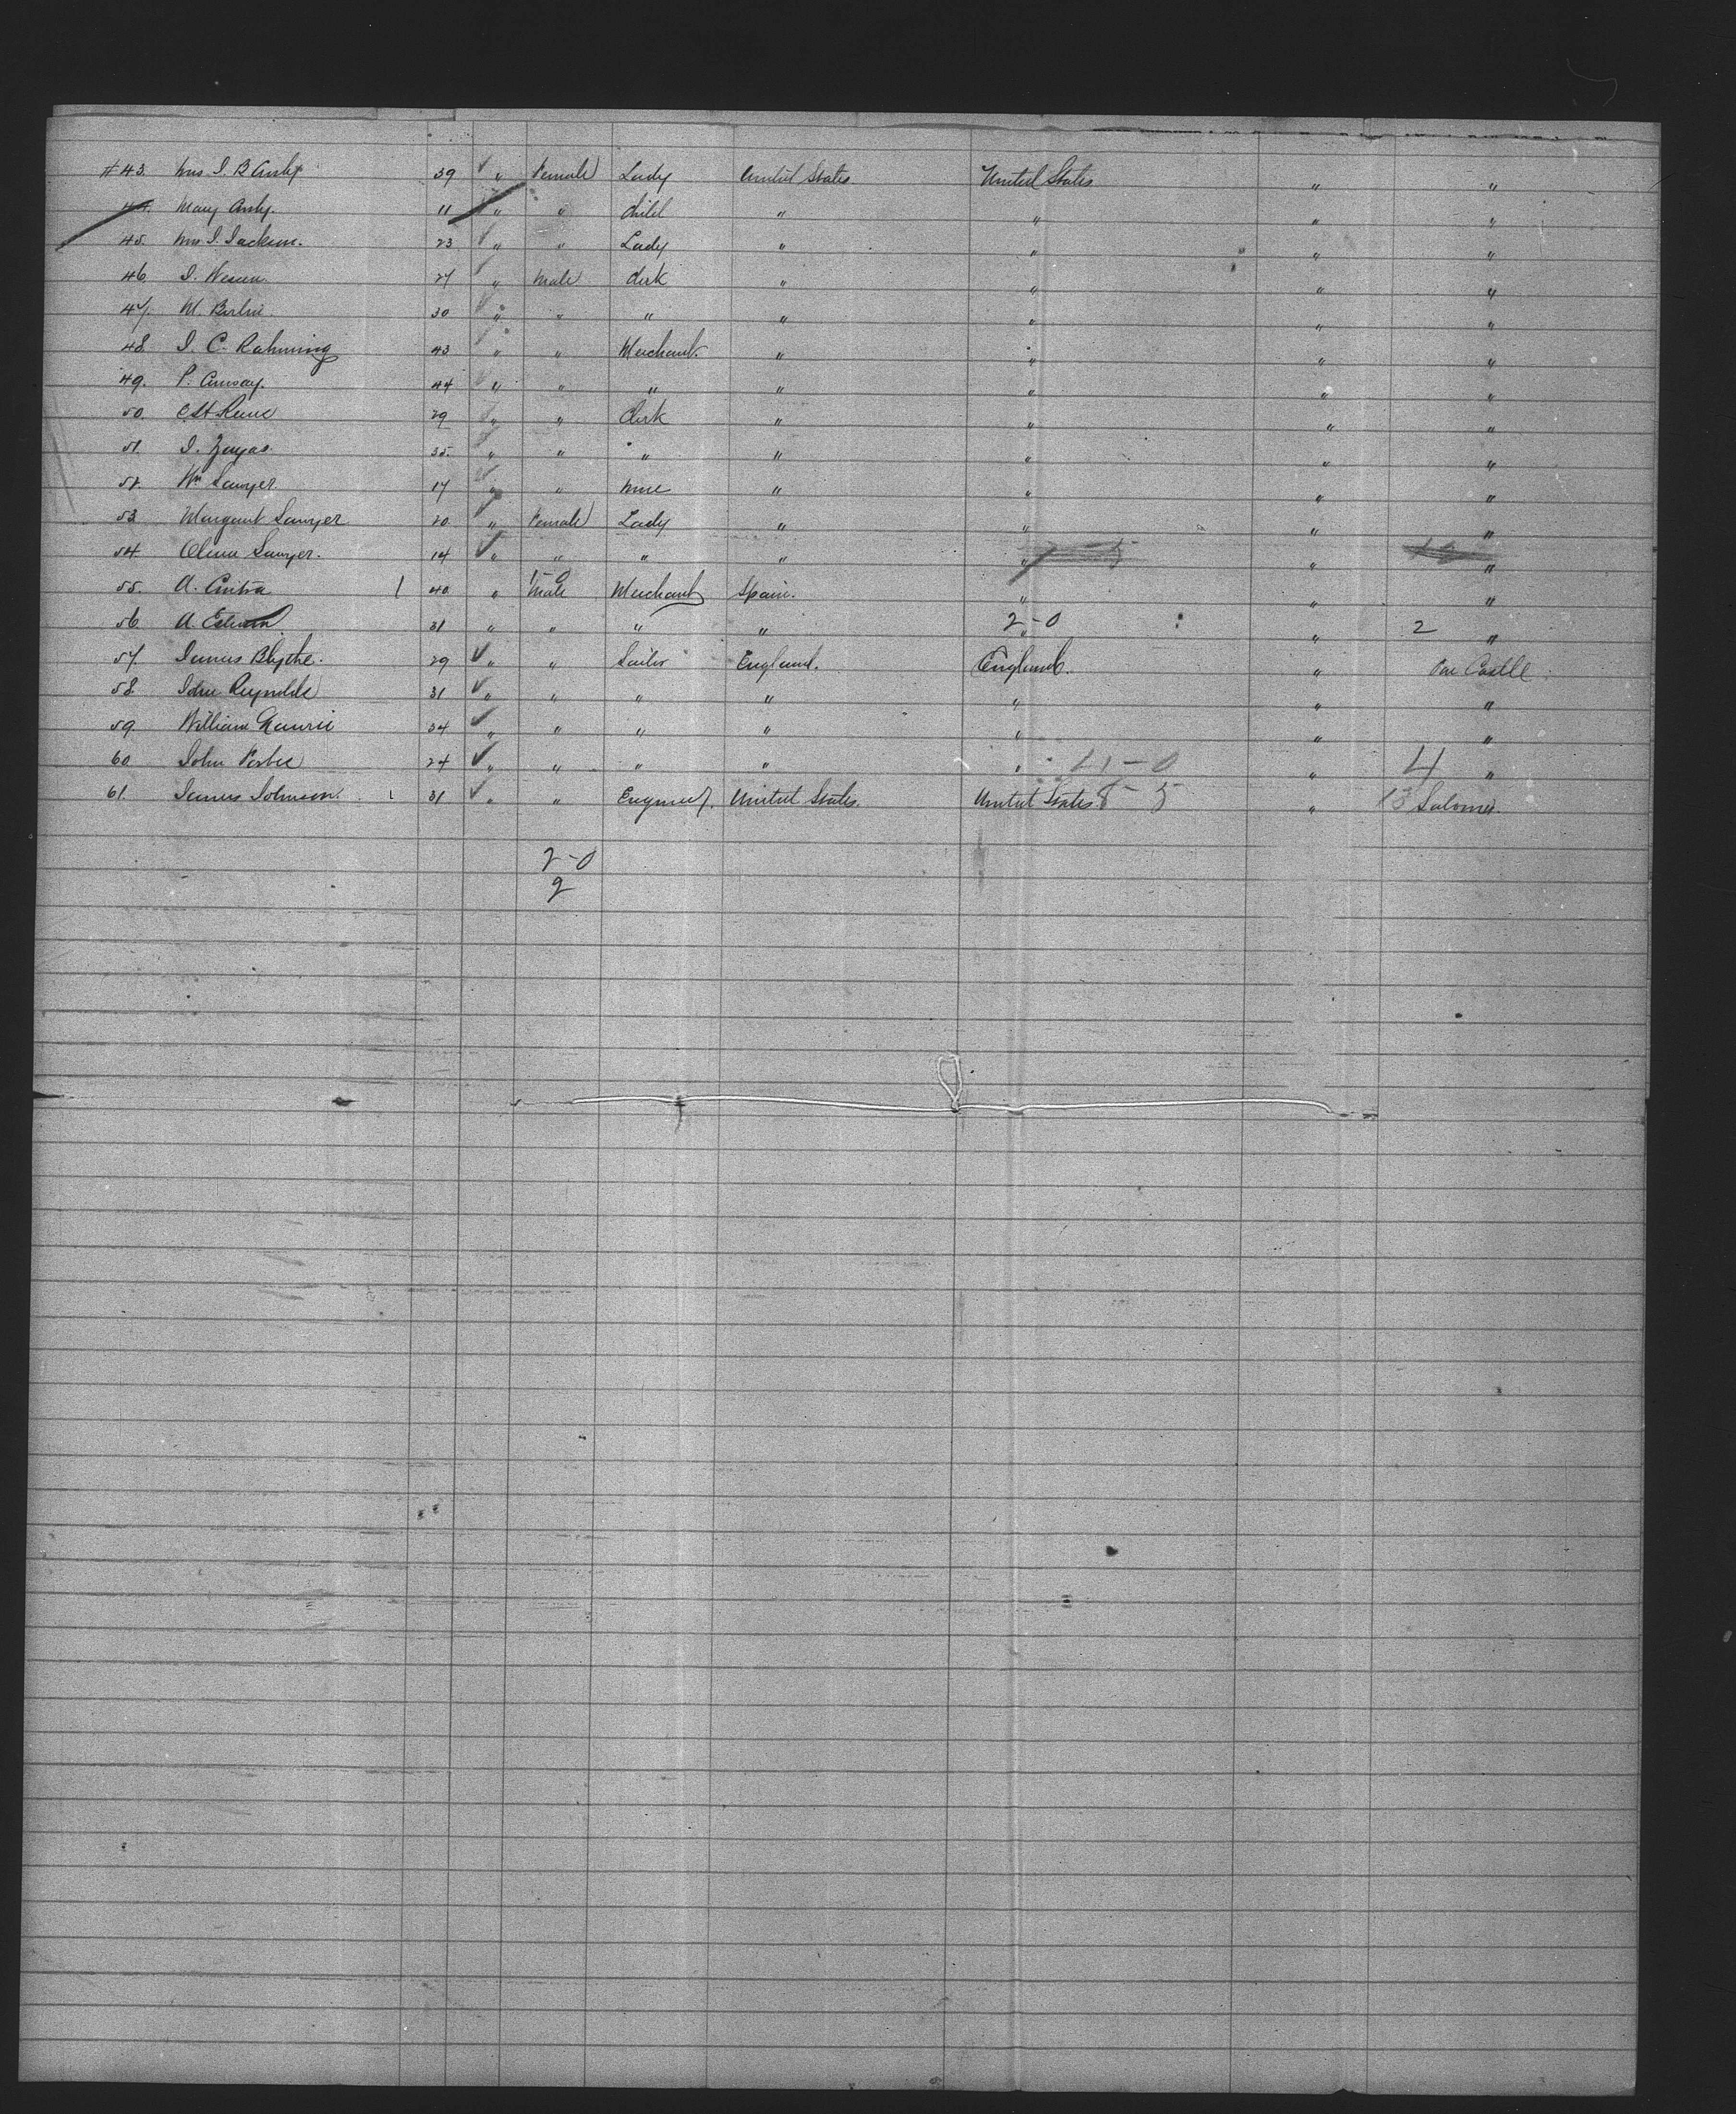 #43. Mrs I. B. 39 " Female Lady United States United States " "
44. Mary 11 " " Child " " " "
45. Mrs I. Jackson. 23 " " Lady " " " "
46. I. 27 " Male Clerk " " " "
47. M. 30 " " " " " " "
48. I. C. Rahming 43 " " Merchant " " " "
49. P. 44 " " " " " " "
50. 29 " " Clerk " " " "
51. I. Zayas. 35. " " " " " " "
52. Wm Sawyer. 17 " " " " " "
53 Margaret Sawyer 20. " Female Lady " " " "
54. Sawyer. 14 " " " " " " "
55. A. 1 40 " 1-0 Male Merchant Spain. " " "
56 A. 31 " " " " 2-0 " " 2 "
57. James Blythe. 29 " " Sailor England. England. " Castle
58. John Reynolds 31 " " " " " " "
59. William 34 " " " " " " "
60 John 24 " " " " " " 4 "
61. James Johnson. 31 " " Engineer. United States. United States 8-5 " 13
2-0
2